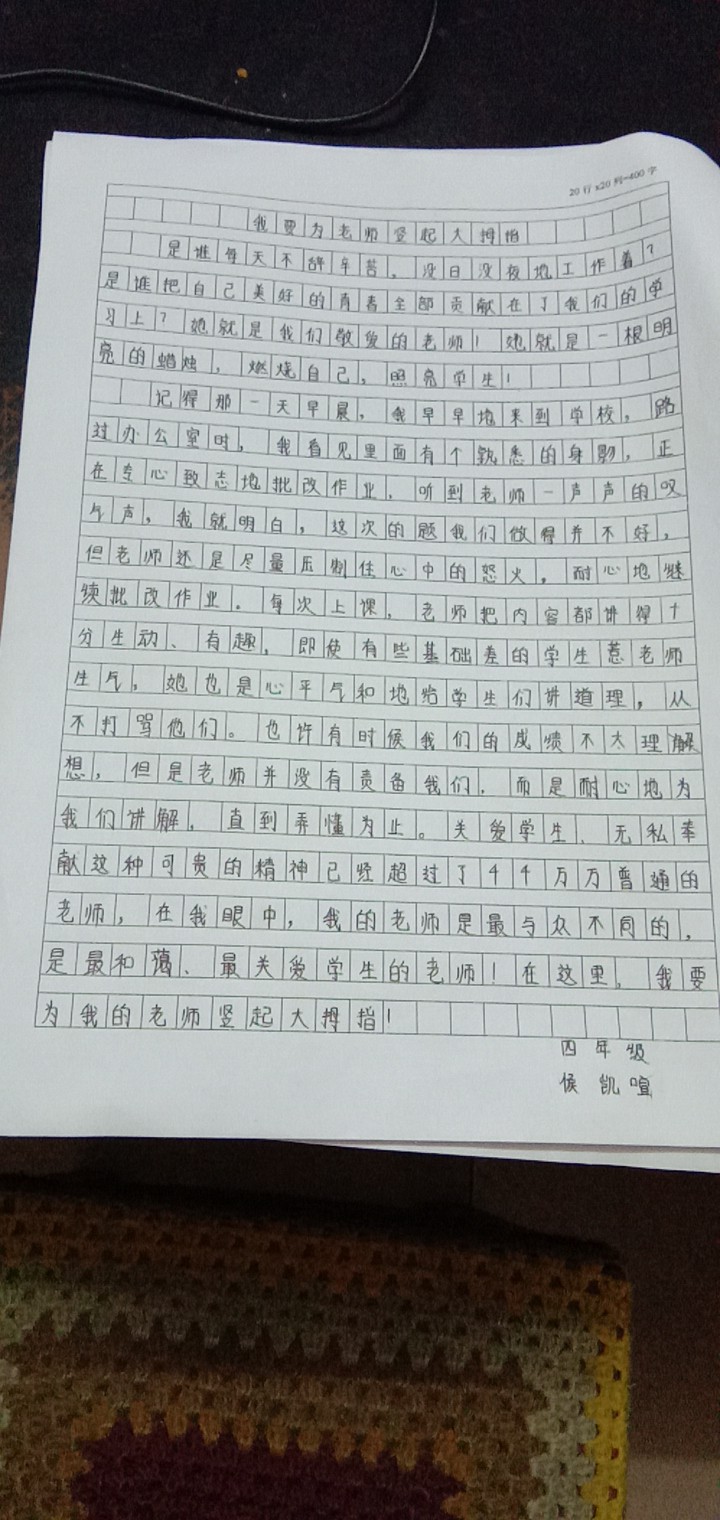 20行x20列=400字
我要为老师竖起大拇指
是谁每天不辞辛苦，没日没夜地工作着？
是谁把自己美好的青春全部贡献在了我们的学
习上？她就是我们敬爱的老师！她就是一根明
亮的蜡烛，燃烧自己，照亮学生！
记得那一天早晨，我早早地来到学校，路
过办公室时，我看见里面有个熟悉的身影，正
在专心致志地批改作业，听到老师一声声的叹
气声，我就明白，这次的题我们做得并不好，
但老师还是尽量压制住心中的怒火，耐心地继
续批改作业。每次上课，老师把内容都讲得十
分生动、有趣，即使有些基础差的学生惹老师
生气，她也是心平气和地给学生们讲道理，从
不打骂他们。也许有时候我们的成绩不太理解
想，但是老师并没有责备我们，而是耐心地为
我们讲解，直到弄懂为止。关爱学生、无私奉
献这种可贵的精神已经超过了千千万万普通的
老师，在我眼中，我的老师是最与众不同的，
是最和蔼、最关爱学生的老师！在这里，我要
为我的老师竖起大拇指！
四年级
侯凯喧